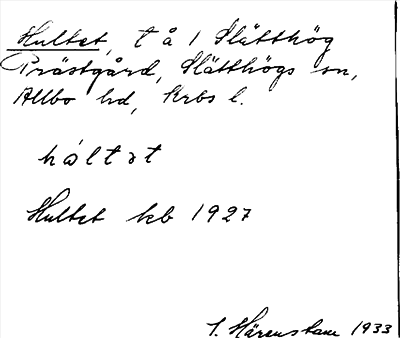 Hultet, t å 1 Slätthög
Prästgård, Slätthögs sn,
Allbo hd, Krbs l.
hól tət
Hultet kb 1927
S. Härenstam 1933